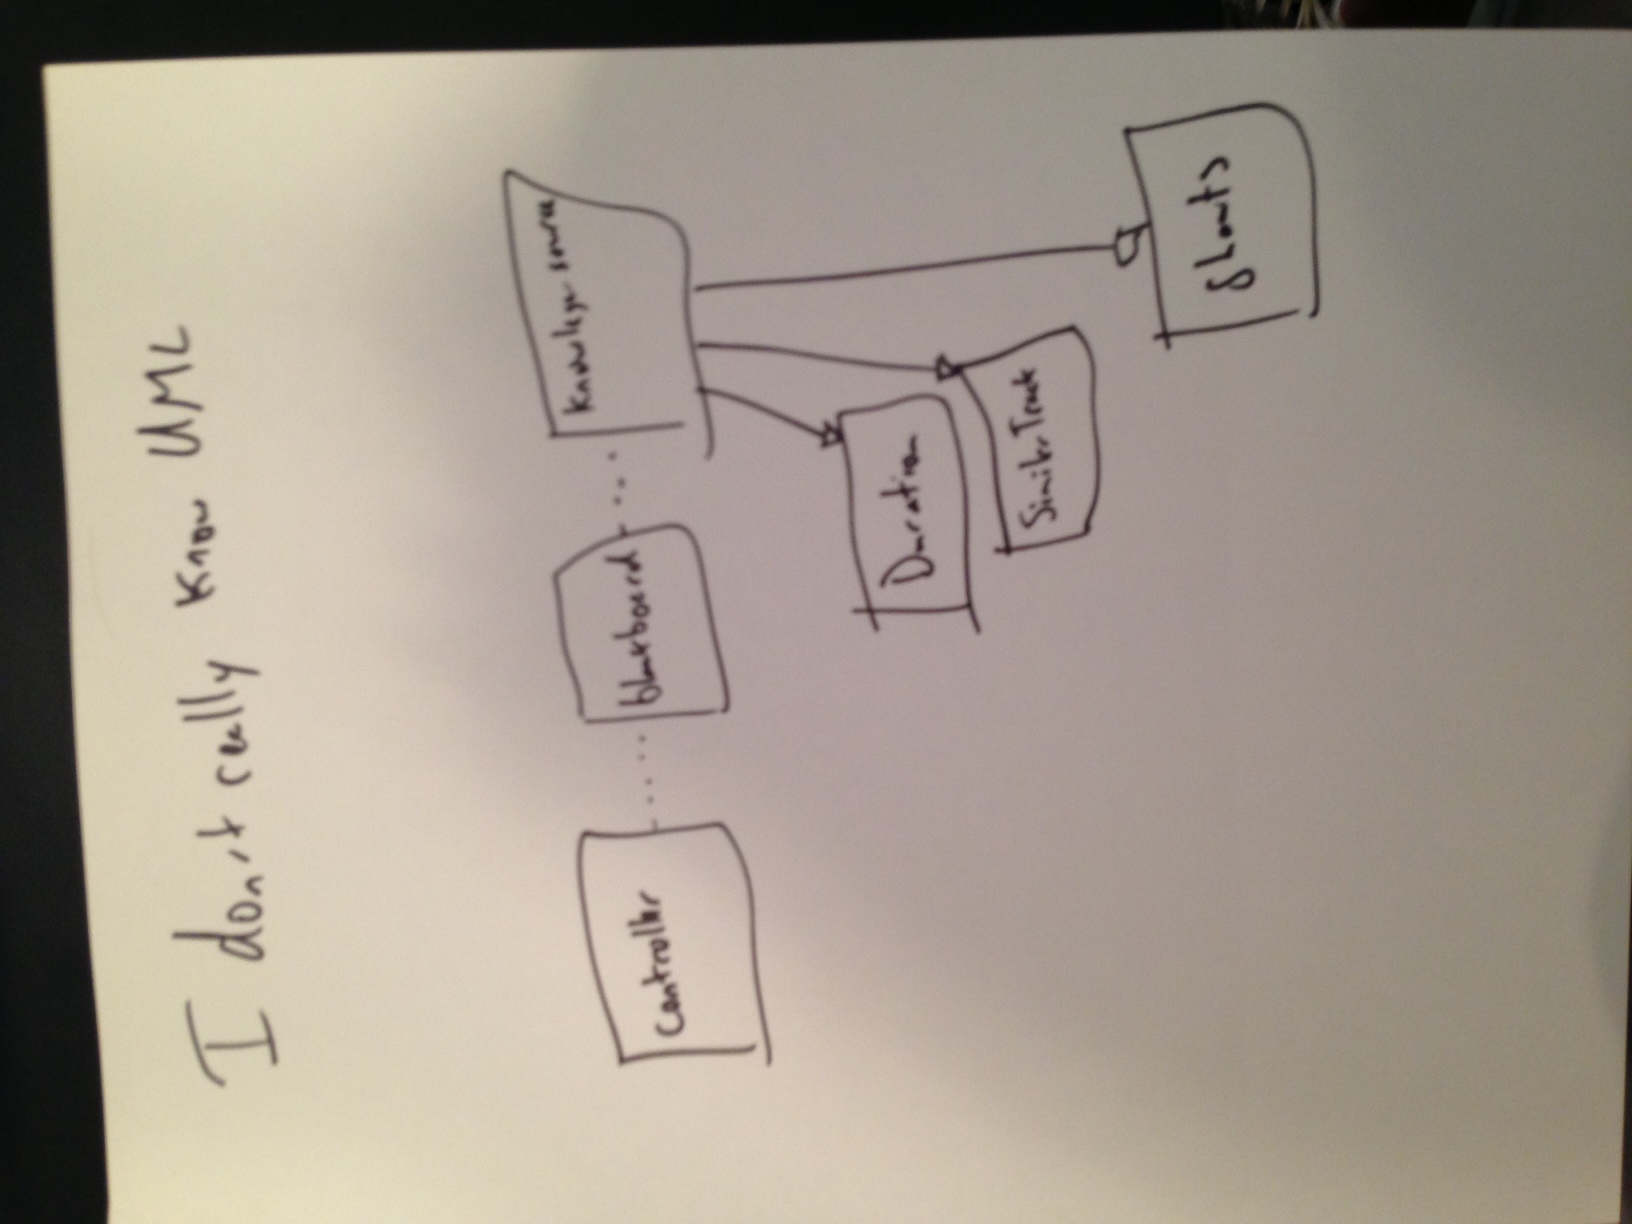 I don't really know UML
Controller
blackboard
Knowlege source
Duration
SimilarTrack
Shouts